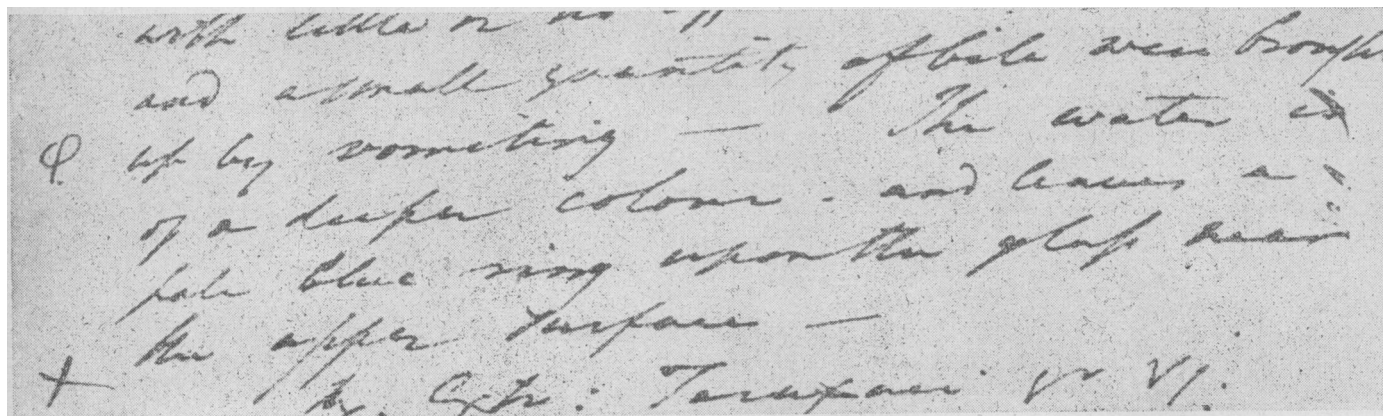 with little or no
and a small quantity of bile were brought
up by vomiting — The water is
of a deeper colour - and leaves a
pale blue ring upon the glass near
the upper surface —
Extr: Taraxaci gr VJ.